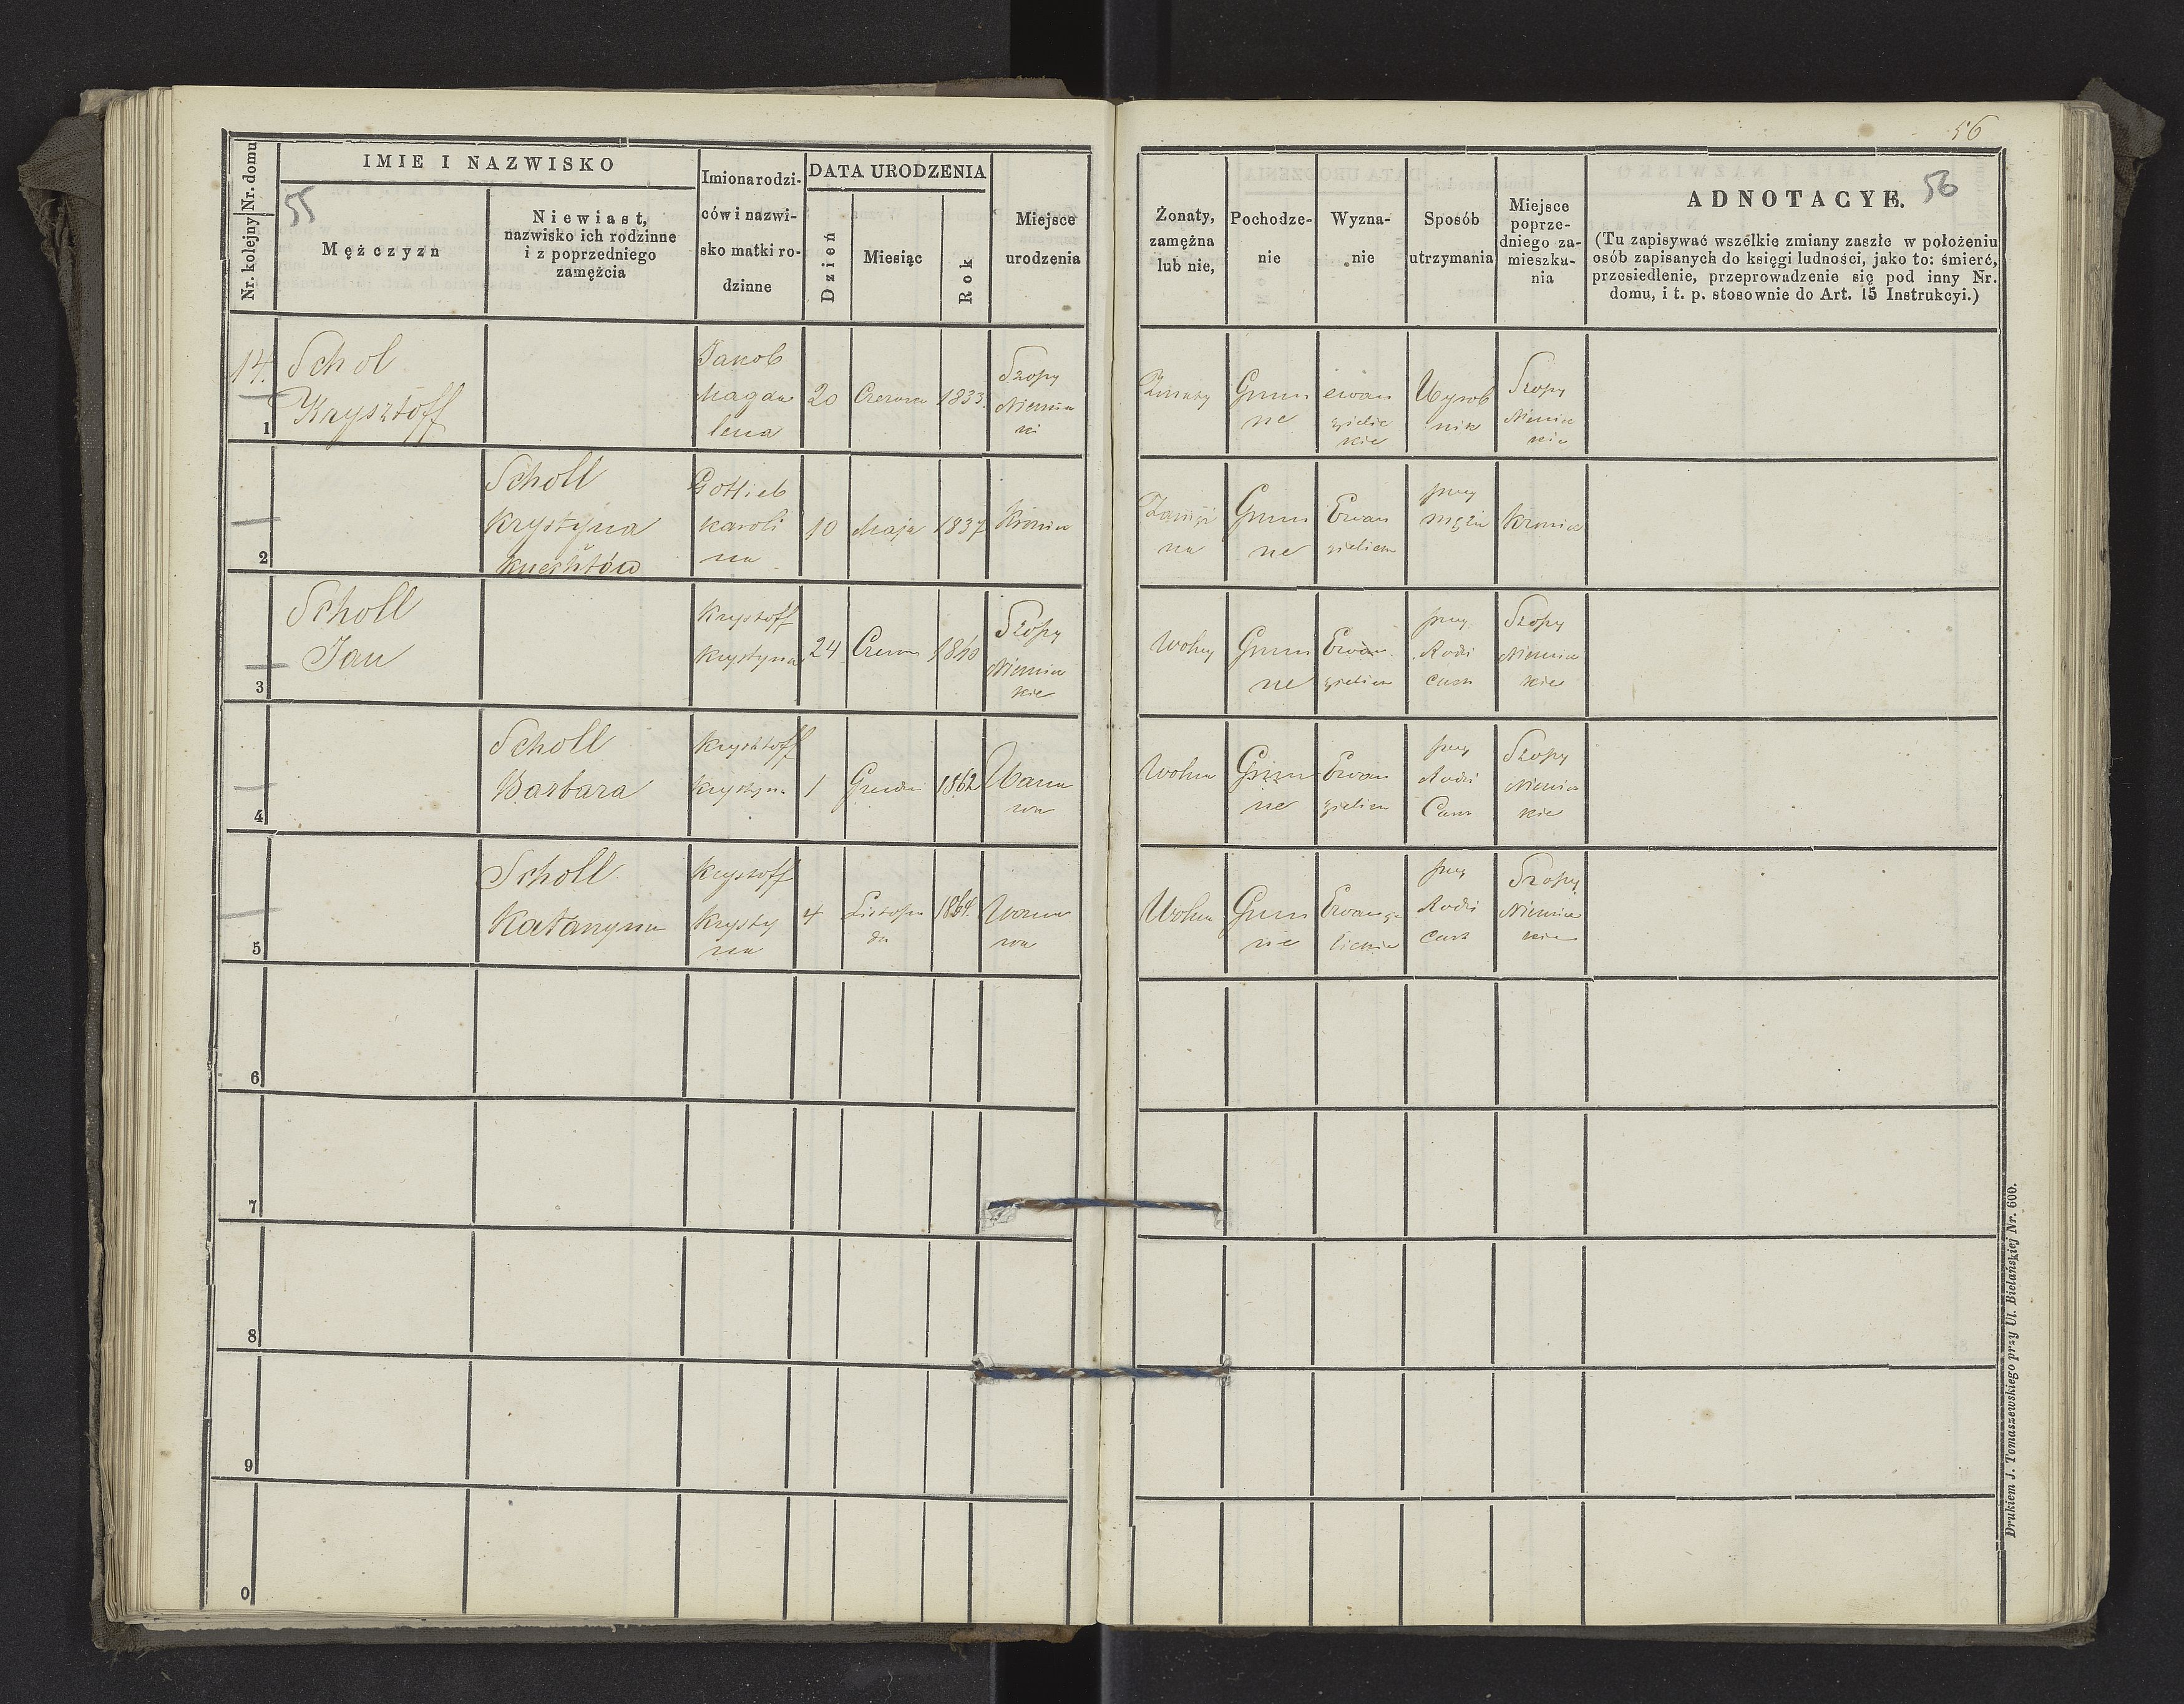 56
Nr. kolejny Nr. domu
IMIE I NAZWISKO
55
Mężczyzn
Niewiast,
nazwisko ich rodzinne
i z poprzedniego
zamężcia
Imiona rodzi-
ców i nazwi-
sko matki ro-
dzinne
DATA URODZENIA
Dzień
Miesiąc
Rok
Miejsce
urodzenia
Żonaty,
zamężna
lub nie,
Pochodze-
nie
Wyzna-
nie
Sposób
utrzymania
Miejsce
poprze-
dniego za-
mieszka-
nia
ADNOTACYE.
56
(Tu zapisywać wszelkie zmiany zaszłe w położeniu
osób zapisanych do księgi ludności, jako to: śmierć,
przesiedlenie, przeprowadzenie się pod inny Nr.
domu, i t. p. stosownie do Art. 15 Instrukcyi.)
14.
1
Schol
Krysztoff
Jakob
Magda
lena
20
1833.
Szopy
Niemiec
ki
Żonaty
Gmin
ne
ewan
gielic
kie
Wyrob
nik
Szopy
Niemiec
kie
2
Scholl
Krystyna
Knechtów
Gottlieb
Karoli
na
10
Maja
1837
Zamęż
na
Gmin
ne
Ewan
gielicw
przy
mężu
3
Scholl
Jan
Krysztoff
Krystyna
24
Czerw
Szopy
Niemiec
kie
Wolny
Gmin
ne
Ewan
gielicw
przy
Rodzi
cach
Szopy
Niemiec
kie
4
Scholl
Barbara
Krysztoff
Krystyna
1
Grudni
1862
Warsza
wa
Wolna
Gmin
ne
Ewan
gielicw
przy
Rodzi
Cach
Szopy
Niemiec
kie
5
Scholl
Katarzyna
Krysztoff
Krysty
na
4
Listopa
da
1864.
Warsza
wa
Wolna
Gmin
ne
Ewangie
lickie
przy
Rodzi
cach
Szopy
Niemiec
kie
6
7
8
9
0
Drukiem J. Tomaszewskiego przy Ul. Bielańskiej Nr. 600.